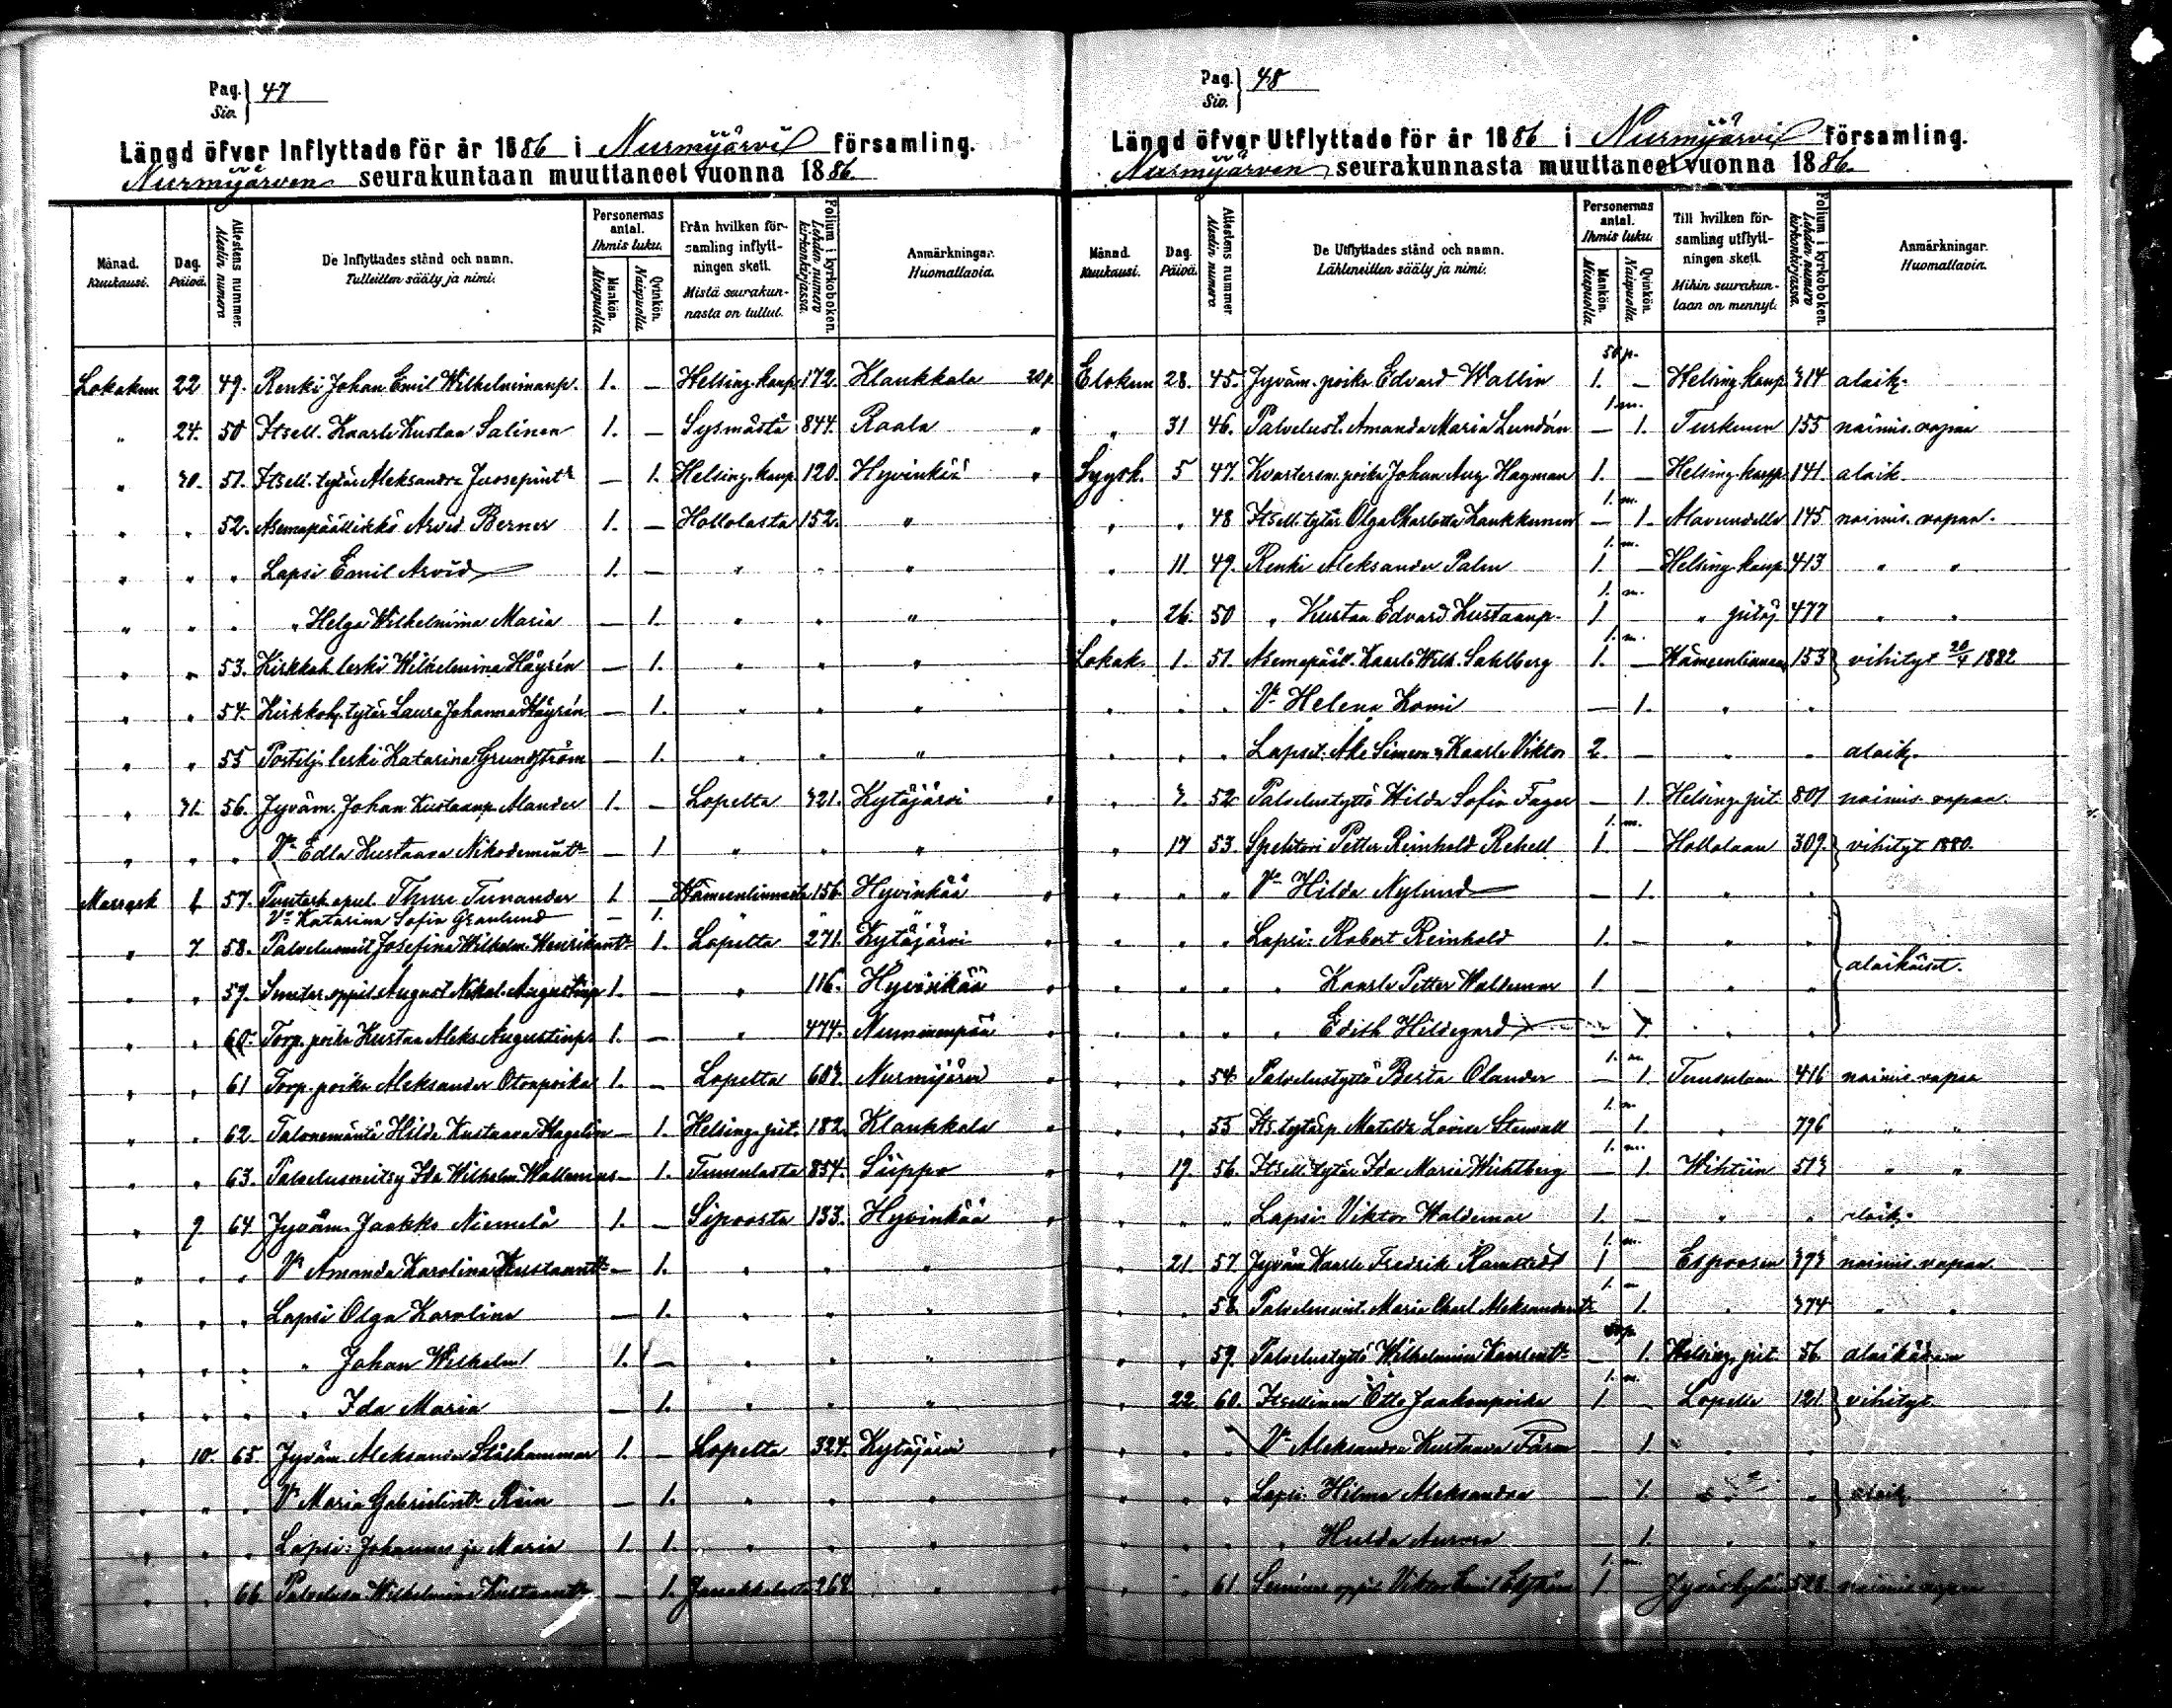 Pag.
Siv. } 47
Längd öfver Inflyttade för år 1886 i Nurmijärvi församling.
Nurmijärven seurakuntaan muuttaneet vuonna 1886.
Månad. Kuukausi. Dag. Päivä. Attestens nummer. Alestin numero De Inflyttades stånd och namn. Tulleitten sääty ja nimi. Personernas antal. Ihmis luku. Mankön. Miespuolia Qvinkön. Naispuolia Från hvilken församling inflyttningen skett. Mistä seurakunnasta on tullut. Folium i kyrkoboken. Lehden numero kirkonkirjassa. Anmärkningar. Huomattavia.
Lokakuu 22 49. Renki Johan Emil Wilhelminanp. 1. — Helsing. kaup. 172. Klaukkala 20 p.
" 24. 50 Itsell. Kaarle Kustaa Salinen 1. — Sysmästä 844. Raala "
" 30. 51. Itsell. tytär Aleksandra Juosepintr — 1. Helsing. kaup. 120. Hyvinkää "
" " 52. Asemapäällikkö Arvid Berner 1. — Hollolasta 152. "
" " " Lapsi Emil Arvid 1. — " " "
" " " " Helga Wilhelmina Maria — 1. " " "
" " 53. Kirkkoh. leski Wilhelmina Häyrén — 1. " " "
" " 54. Kirkkoh. tytär Laura Johanna Häyrén — 1. " " "
" " 55 Postilj. leski Katarina Grundström — 1. " " "
" 31. 56. Jyväm. Johan Kustaanp. Alander 1. — Lopelta 321. Kytäjärvi "
" " " Vo Edla Kustaava Nikodemintr — 1 " " "
Marrask 1 57. Thure Tunander 1 — Hämeenlinnasta 156. Hyvinkää "
Vo Katarina Sofia Granlund — 1. "
" 7 58. Josefina Wilhelm. Henrikintr 1. Lopelta 271. Kytäjärvi "
" " 59. oppil. August Nikol. Augustinp 1. — " 116. Hyvinkää "
" " 60. Torp. poika Kustaa Aleks. Augustinp. 1. — " 474. Numminpää "
" " 61 Torp. poika Aleksander Otonpoika 1. — Lopelta 603. Nurmijärvi "
" " 62. Talonemäntä Hilda Kustaava Hagelin — 1. Helsing. pit. 182. Klaukkala "
" " 63. Palvelusneitsy Ida Wilhelm. Wallenius — 1. Tuusulasta 854. Siippo "
" 9 64. Jyväm. Jaakko Niemelä 1. — Sipoosta 133. Hyvinkää "
" " " Vo Amanda Karolina Kustaantr — 1. " " "
" " " Lapsi Olga Karolina — 1. " " "
" " " " Johan Wilhelm 1. — " " "
" " " " Ida Maria — 1. " " "
" 10. 65. Jyväm. Aleksander Stålhammar 1. — Lopelta 324. Kytäjärvi "
" " " Vo Maria Gabrielintr — 1. " " "
" " " Lapsi: Johannes ja Maria 1. 1. " " "
" " 66. Wilhelmina Kustaantr — 1. Janakkalasta 268. " "
Pag.
Siv. } 48
Längd öfver Utflyttade för år 1886 i Nurmijärvi församling.
Nurmijärven seurakunnasta muuttaneet vuonna 1886.
Månad. Kuukausi. Dag. Päivä. Attestens nummer Alestin numero De Utflyttades stånd och namn. Lähteneitten sääty ja nimi. Personernas antal. Ihmis luku. Mankön. Miespuolia Qvinkön. Naispuolia. Till hvilken församling utflyttningen skett. Mihin seurakuntaan on mennyt. Folium i kyrkoboken. Lehden numero kirkonkirjassa. Anmärkningar. Huomattavia.
50 p.
Elokuu 28. 45. Jyväm. poika Edvard Wallin 1. — Helsing. kaup. 314 alaik.
1. m.
" 31 46. Palvelust. Amanda Maria Lundén — 1. Turkuun 155 naimis. vapaa
Syysk. 5 47. poika Johan Aug. Hagman 1. — Helsing. kaup. 141. alaik.
1. m.
" " 48 Itsell. tytär Olga Charlotta Kaukkunen — 1. 145 naimis. vapaa.
1. m.
" 11. 49. Renki Aleksander Palen 1. — Helsing. kaup. 413 " "
1. m.
" 26. 50 " Kustaa Edvard Kustaanp. 1 " pitäj. 477 " "
1. m.
Lokak. 1. 51. Asemapääll. Kaarlo Wilh. Sahlberg 1. — Hämeenlinnaan 153 } vihityt 26/4 1882
" " " Vo Helena Komi — 1. " "
" " " Lapset: Åke Simeon ja Kaarlo Viktor 2. — " " alaik.
" 7. 52 Palvelustyttö Hilda Sofia Fager — 1. Helsing. pit. 801 naimis. vapaa.
1. m.
" 17 53. Petter Reinhold Rehell 1. — Hollolaan 309. } vihityt 1880.
" " " Vo Hilda Nylund — 1. " "
" " " Lapsi: Robert Reinhold 1. — " "
" " " " Kaarlo Petter Waldemar 1. — " " } alaikäiset.
" " " " Edith Hildegard — 1. " "
1. m.
" " 54. Palvelustyttö Berta Olander — 1. Tuusulaan 416 naimis. vapaa
1. m.
" " 55 Its. tytärp. Matilda Lovisa Stenvall — 1. " 796 " "
1. m.
" 19. 56. Itsell. tytär Ida Maria Wichtberg — 1. Wihtiin 513 " "
" " " Lapsi: Viktor Waldemar 1. — " " alaik.
1. m.
" 21 57. Jyväm. Kaarlo Fredrik Ramstedt 1 Espoosen 393 naimis. vapaa.
1. m
" " 58. Maria Charl. Aleksanderintr 1. " 374 " "
50 p.
" " 59. Palvelustyttö Wilhelmina Kaarlentr — 1. Helsing. pit. 56 alaikäinen
1. m.
" 22 60. Itsellinen Otto Jaakonpoika 1 — Lopelle 121. } vihityt.
" " " Vo Aleksandra Kustaava — 1 " "
" " " Lapsi: Hilma Aleksandra — 1. " " } alaik.
" " " " Hulda Aurora 1. " "
1. m
" " 61 oppil. Viktor Emil 1 naimis. vapaa